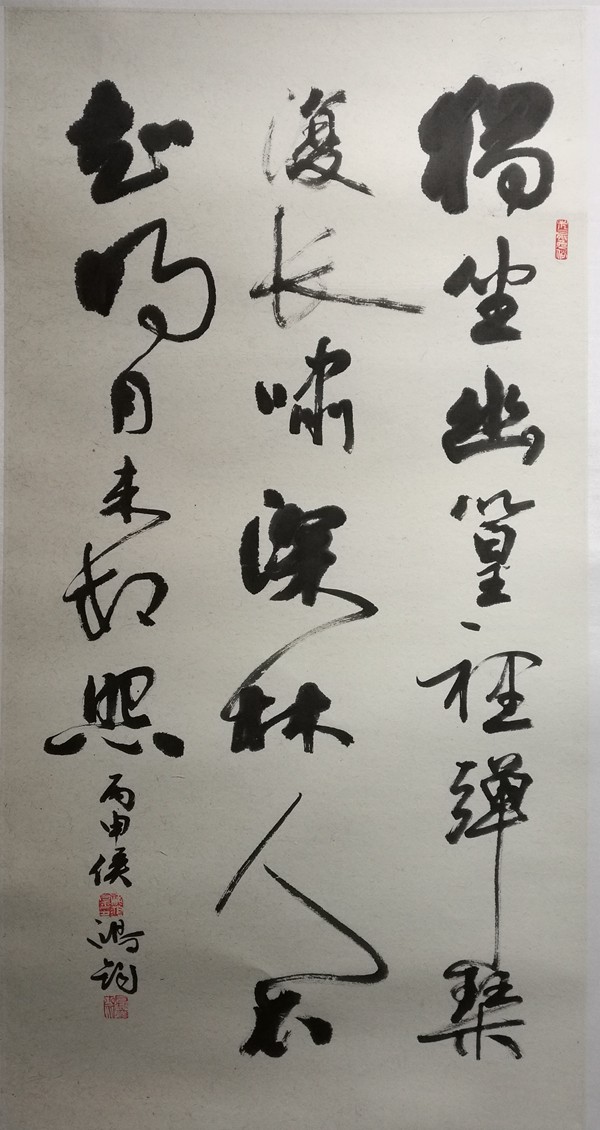 獨坐幽篁裡彈琴
復长嘯深林人不
知明月来相照
丙申侯鴻钧